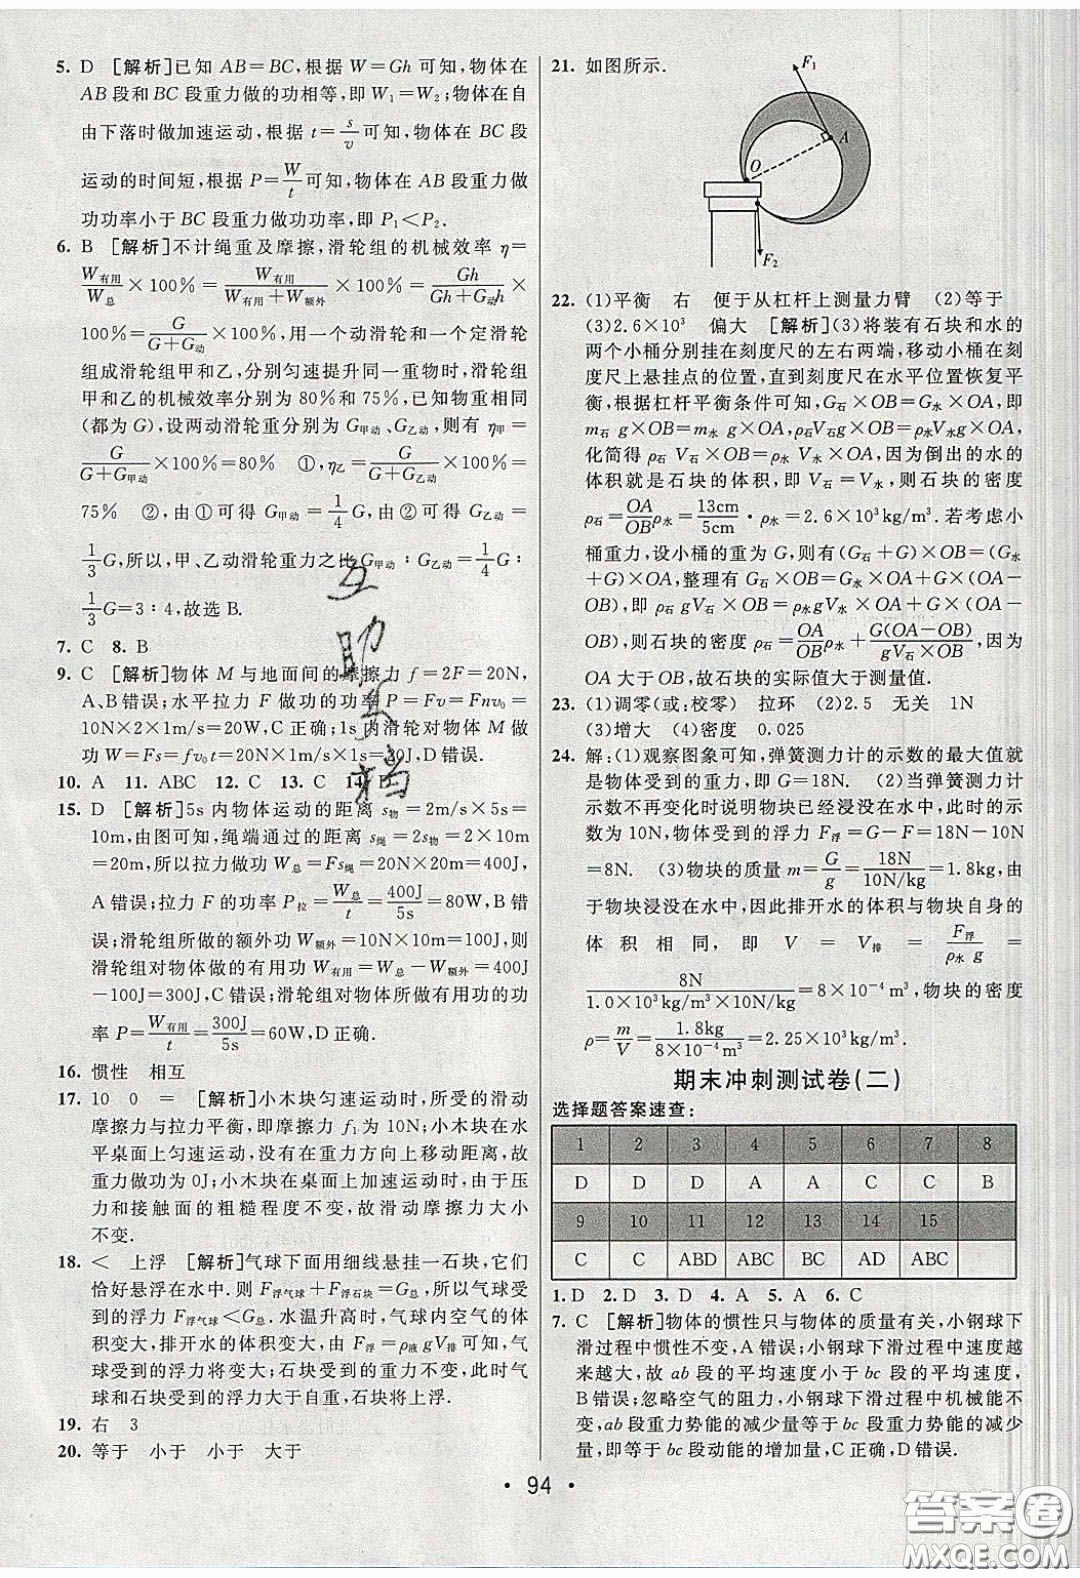 5. D [解析]已知 AB=BC,根据 W=Gh 可知,物体在
AB 段和 BC 段重力做的功相等,即 W₁=W₂;物体在自
由下落时做加速运动,根据 t=s/v 可知,物体在 BC 段
运动的时间短,根据 P=W/t 可知,物体在 AB 段重力做
功功率小于 BC 段重力做功功率,即 P₁<P₂.
6. B [解析]不计绳重及摩擦,滑轮组的机械效率 η=
W有用/W总×100%=W有用/(W有用+W额外)×100%=Gh/(Gh+G动h)×
100%=G/(G+G动)×100%,用一个动滑轮和一个定滑轮
组成滑轮组甲和乙,分别匀速提升同一重物时,滑轮组
甲和乙的机械效率分别为 80%和 75%,已知物重相同
(都为 G),设两动滑轮重分别为 G甲动、G乙动,则有 η甲=
G/(G+G甲动)×100%=80% ①,η乙=G/(G+G乙动)×100%=
75% ②,由①可得 G甲动=1/4G,由②可得 G乙动=
1/3G,所以,甲、乙动滑轮重力之比 G甲动:G乙动=1/4G:
1/3G=3:4,故选 B.
7. C 8. B
9. C [解析]物体 M 与地面间的摩擦力 f=2F=20N,
A、B错误;水平拉力 F 做功的功率 P=Fv=Fnv₀=
10N×2×1m/s=20W,C 正确;1s 内滑轮对物体 M 做
功 W=Fs=fv₀t=20N×1m/s×1s=20J,D 错误.
10. A 11. ABC 12. C 13. C 14.
15. D [解析]5s 内物体运动的距离 s物=2m/s×5s=
10m,由图可知,绳端通过的距离 s绳=2s物=2×10m
=20m,所以拉力做功 W总=Fs绳=20N×20m=400J,
A 错误;拉力 F 的功率 P拉=W总/t=400J/5s=80W,B 错
误;滑轮组所做的额外功 W额外=10N×10m=100J,则
滑轮组对物体做的有用功 W有用=W总-W额外=400J
-100J=300J,C 错误;滑轮组对物体所做有用功的功
率 P=W有用/t=300J/5s=60W,D 正确.
16. 惯性 相互
17. 10 0 = [解析]小木块匀速运动时,所受的滑动
摩擦力与拉力平衡,即摩擦力 f₁ 为 10N;小木块在水
平桌面上匀速运动,没有在重力方向上移动距离,故
重力做功为 0J;小木块在桌面上加速运动时,由于压
力和接触面的粗糙程度不变,故滑动摩擦力大小
不变.
18. < 上浮 [解析]气球下面用细线悬挂一石块,它们
恰好悬浮在水中.则 F浮气球+F浮石块=G总,所以气球受
到的浮力 F浮气球<G总.水温升高时,气球内空气的体
积变大,排开水的体积变大,由 F浮=ρ液gV排可知,气
球受到的浮力将变大;石块受到的重力不变,此时气
球和石块受到的浮力大于自重,石块将上浮.
19. 右 3
20. 等于 小于 小于 大于
21. 如图所示.
F₁
A
O
F₂
22. (1)平衡 右 便于从杠杆上测量力臂 (2)等于
(3)2.6×10³ 偏大 [解析](3)将装有石块和水的
两个小桶分别挂在刻度尺的左右两端,移动小桶在刻
度尺上悬挂点的位置,直到刻度尺在水平位置恢复平
衡,根据杠杆平衡条件可知,G石×OB=G水×OA,即
m石g×OB=m水g×OA,ρ石V石g×OB=ρ水V水g×OA,
化简得 ρ石V石×OB=ρ水V水×OA,因为倒出的水的
体积就是石块的体积,即 V石=V水,则石块的密度
ρ石=OA/OBρ水=13cm/5cm·ρ水=2.6×10³kg/m³.若考虑小
桶重力,设小桶的重为 G,则有(G石+G)×OB=(G水
+G)×OA,整理有 G石×OB=G水×OA+G×(OA-
OB),即 ρ石gV石×OB=ρ水gV水×OA+G×(OA-
OB),则石块的密度 ρ石=OA/OBρ水+G(OA-OB)/(gV石×OB),因为
OA 大于 OB,故石块的实际值大于测量值.
23. (1)调零(或:校零) 拉环 (2)2.5 无关 1N
(3)增大 (4)密度 0.025
24. 解:(1)观察图象可知,弹簧测力计的示数的最大值就
是物体受到的重力,即 G=18N. (2)当弹簧测力计
示数不再变化时说明物块已经浸没在水中,此时的示
数为 10N,物体受到的浮力 F浮=G-F=18N-10N
=8N. (3)物块的质量 m=G/g=18N/(10N/kg)=1.8kg,由
于物块浸没在水中,因此排开水的体积与物块自身的
体积相同,即 V=V排=F浮/(ρ水g)=
8N/(1.0×10³kg/m³×10N/kg)=8×10⁻⁴m³,物块的密度
ρ=m/V=1.8kg/(8×10⁻⁴m³)=2.25×10³kg/m³.
期末冲刺测试卷(二)
选择题答案速查:
1 2 3 4 5 6 7 8
D D D A A C C B
9 10 11 12 13 14 15
C C ABD ABC BC AD ABC
1. D 2. D 3. D 4. A 5. A 6. C
7. C [解析]物体的惯性只与物体的质量有关,小钢球下
滑过程中惯性不变,A 错误;小钢球下滑过程中速度越
来越大,故 ab 段的平均速度小于 bc 段的平均速度,
B 错误;忽略空气的阻力,小钢球下滑过程中机械能不
变,ab 段重力势能的减少量等于 bc 段重力势能的减少
量,即等于 bc 段动能的增加量,C 正确,D 错误.
94
互助文档
答案圈
MXQE.COM